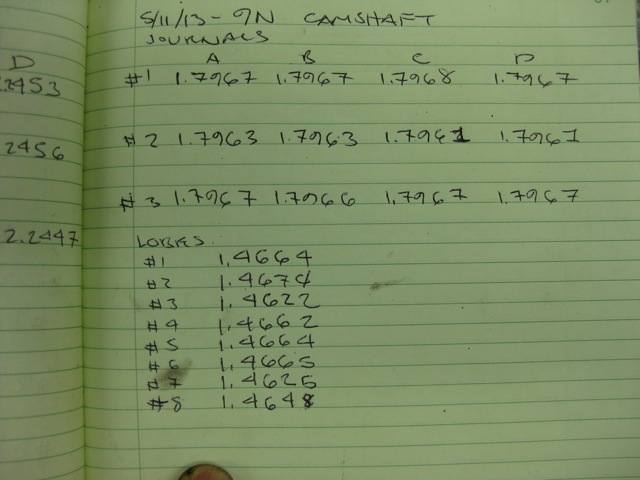 5/11/13 - 9N CAMSHAFT
JOURNALS
D
A B C D
.2453
#1 1.7967 1.7967 1.7968 1.7967
2456
#2 1.7963 1.7963 1.7961 1.7961
#3 1.7967 1.7966 1.7967 1.7967
2.2447
LOBES
#1 1.4664
#2 1.4674
#3 1.4622
#4 1.4662
#5 1.4664
#6 1.4665
#7 1.4625
#8 1.4648